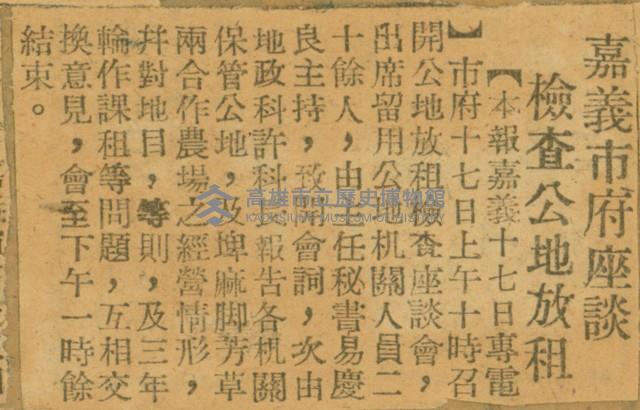 嘉義市府座談
檢查公地放租
【本報嘉義十七日專電
】市府十七日上午十時召
開公地放租檢查座談會，
出席留用公地机關人員二
十餘人，由主任秘書易慶
良主持，致開會詞，次由
地政科許科長報告各机關
保管公地，及埤麻脚芳草
兩合作農場之經營情形，
幷對地目，等則，及三年
輪作課租等問題，互相交
換意見，會至下午一時餘
結束。
高雄市立歷史博物館
KAOHSIUNG MUSEUM OF HISTORY